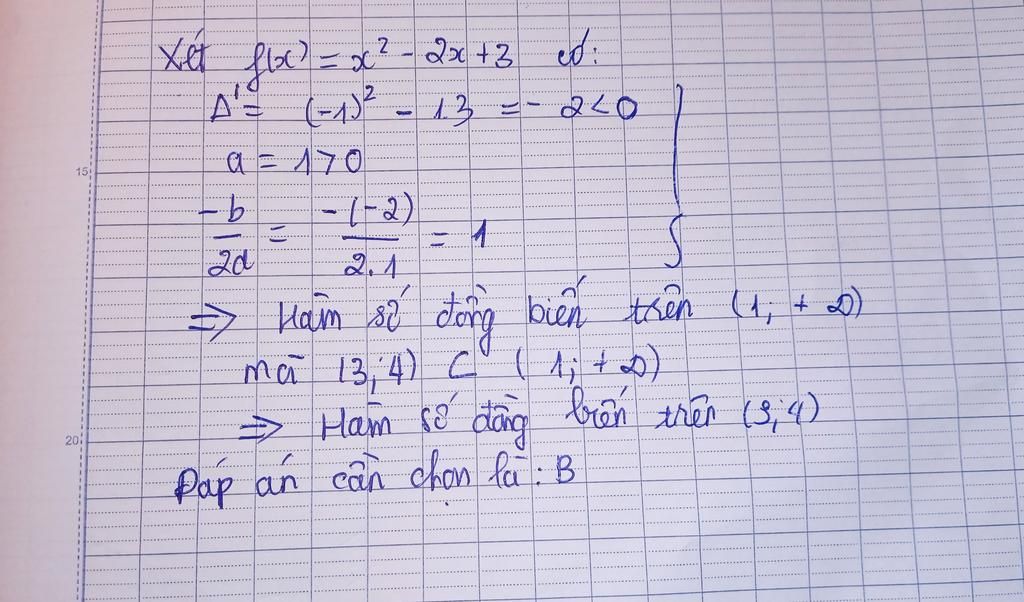 Xét f(x) = x² - 2x + 3 có:
Δ' = (-1)² - 1.3 = - 2 < 0
15
a = 1 > 0
-b/2a = -(-2)/2.1 = 1
=> Hàm số đồng biến trên (1; + ∞)
mà (3; 4) ⊂ (1; + ∞)
=> Hàm số đồng biến trên (3; 4)
20
Đáp án cần chọn là: B